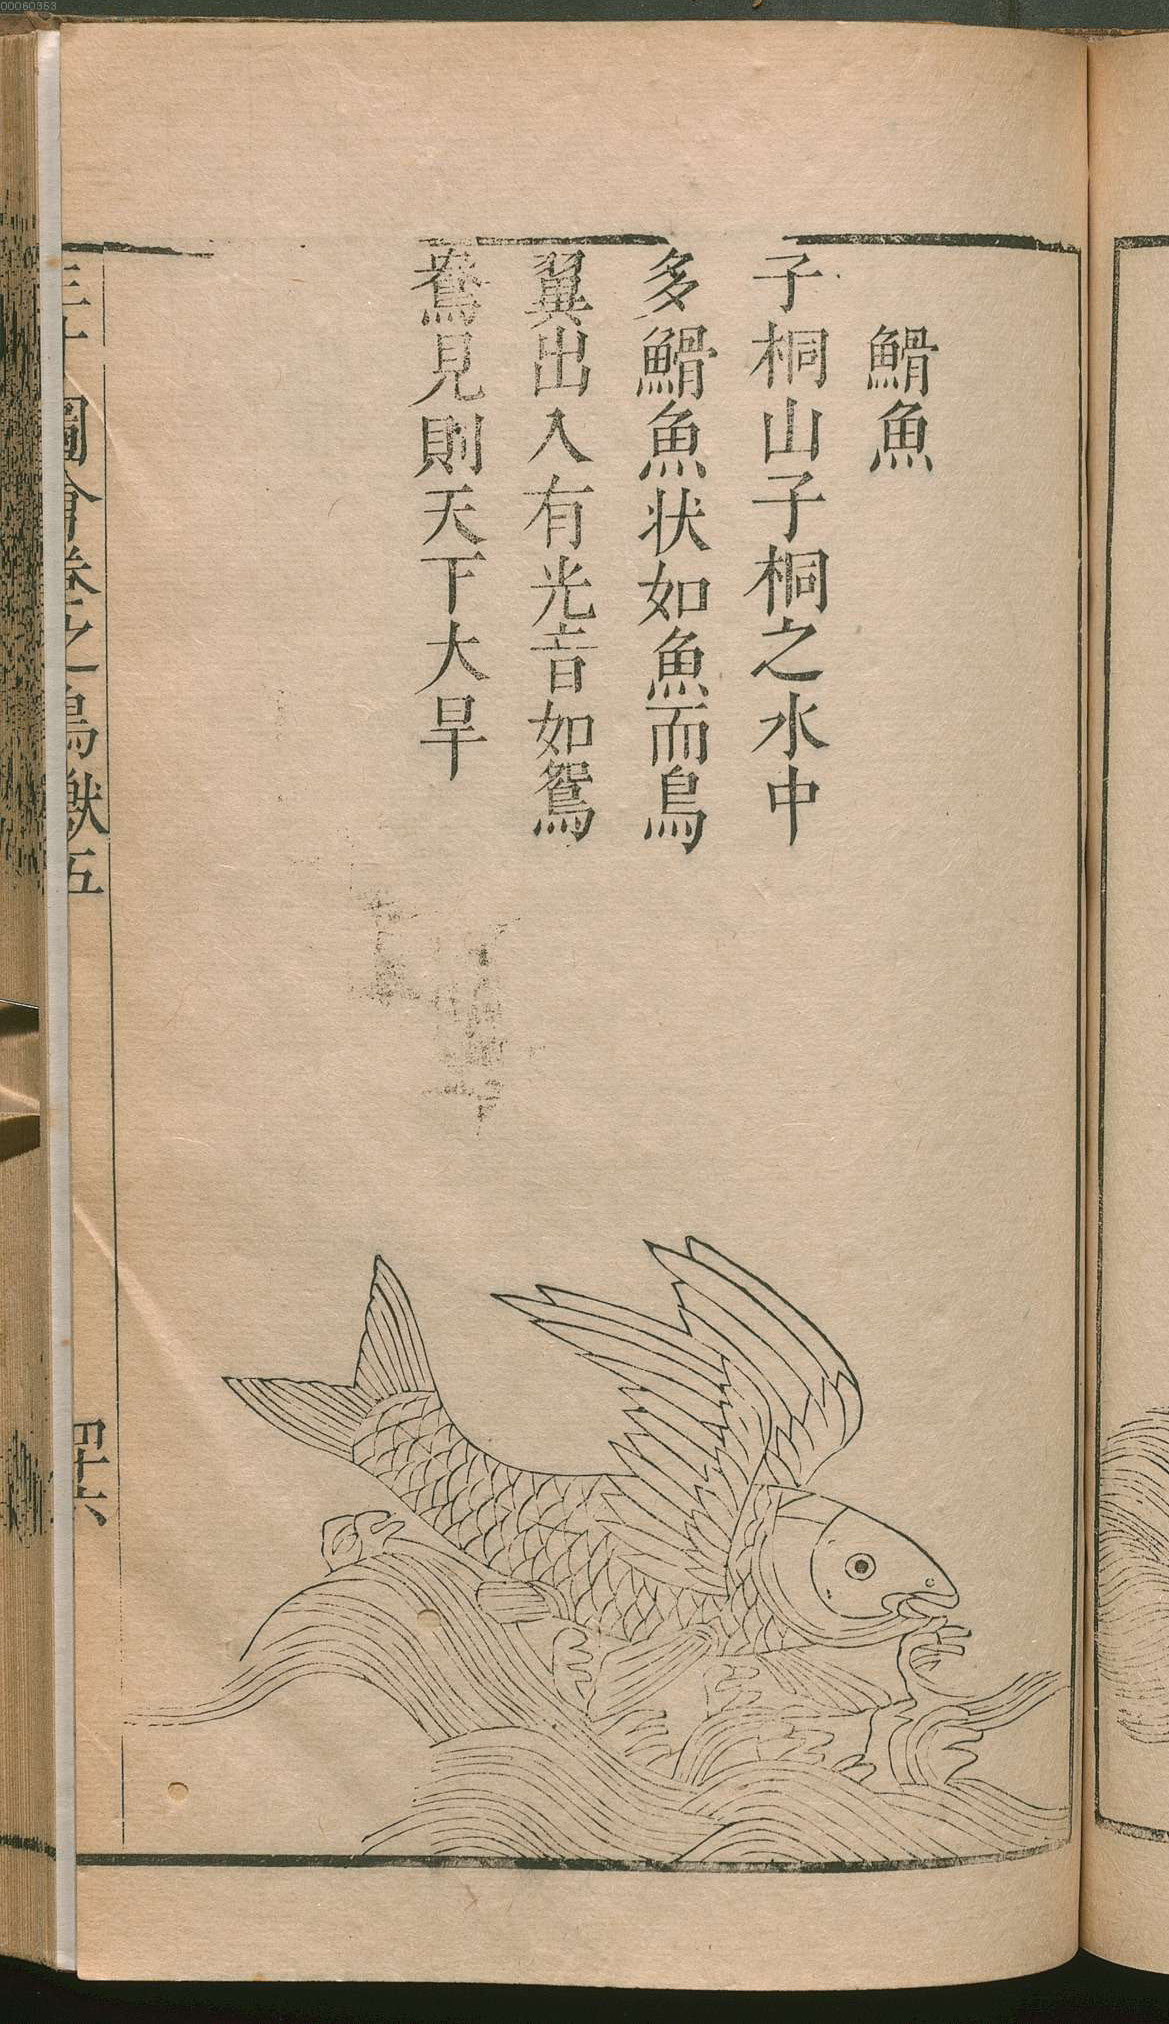 00060353
鰼魚
子桐山子桐之水中
多鰼魚状如魚而鳥
翼出入有光音如鴛
鴦見則天下大旱
三才圖會卷之鳥獸五
四十六